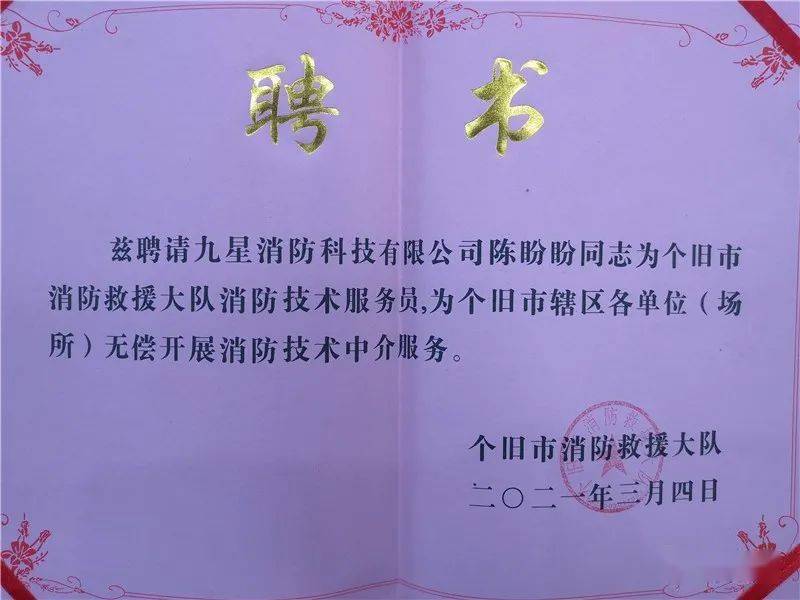 聘书
兹聘请九星消防科技有限公司陈盼盼同志为个旧市
消防救援大队消防技术服务员,为个旧市辖区各单位（场
所）无偿开展消防技术中介服务。
个旧市消防救援大队
二〇二一年三月四日